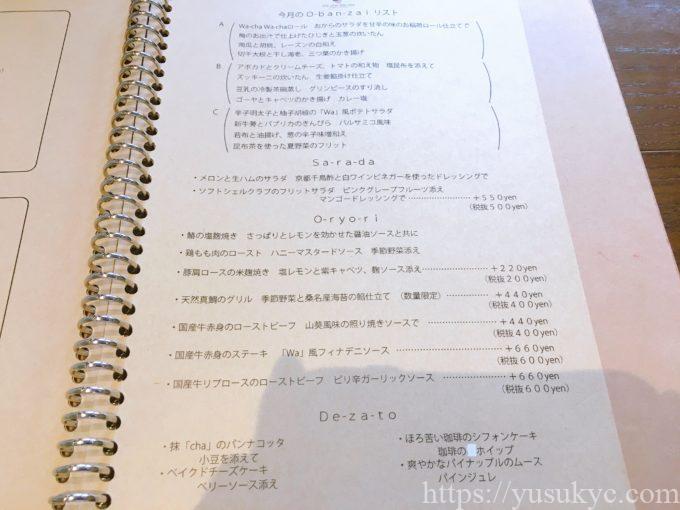 今月の O-ban-zai リスト
A
Wa-cha Wa-chaロール おからのサラダを甘辛の味のお稲荷ロール仕立てで
梅のお出汁で仕上げたひじきと玉葱の炊いたん
南瓜と胡桃、レーズンの白和え
切干大根と干し海老、三つ葉のかき揚げ
B
アボカドとクリームチーズ、トマトの和え物 塩昆布を添えて
ズッキーニの炊いたん 生姜餡掛け仕立て
豆乳の冷製茶碗蒸し グリンピースのすり流し
ゴーヤとキャベツのかき揚げ カレー塩
C
辛子明太子と柚子胡椒の「Wa」風ポテトサラダ
新牛蒡とパプリカのきんぴら バルサミコ風味
若布と油揚げ、葱の辛子味噌和え
昆布茶を使った夏野菜のフリット
Sa-ra-da
・メロンと生ハムのサラダ 京都千鳥酢と白ワインビネガーを使ったドレッシングで
・ソフトシェルクラブのフリットサラダ ピンクグレープフルーツ添え
マンゴードレッシングで ……………………… +550yen
(税抜500yen)
O-ryo-ri
・鯖の塩麹焼き さっぱりとレモンを効かせた醤油ソースと共に
・鶏もも肉のロースト ハニーマスタードソース 季節野菜添え
・豚肩ロースの米麹焼き 塩レモンと紫キャベツ、麹ソース添え ……………………… +220yen
(税抜200yen)
・天然真鯛のグリル 季節野菜と桑名産海苔の餡仕立て (数量限定) …………… +440yen
(税抜400yen)
・国産牛赤身のローストビーフ 山葵風味の照り焼きソースで ……………………… +440yen
(税抜400yen)
・国産牛赤身のステーキ 「Wa」風フィナデニソース ……………………………… +660yen
(税抜600yen)
・国産牛リブロースのローストビーフ ピリ辛ガーリックソース ……………………… +660yen
(税抜600yen)
De-za-to
・抹「cha」のパンナコッタ
小豆を添えて
・ベイクドチーズケーキ
ベリーソース添え
・ほろ苦い珈琲のシフォンケーキ
珈琲の ホイップ
・爽やかなパイナップルのムース
パインジュレ
https://yusukyc.com